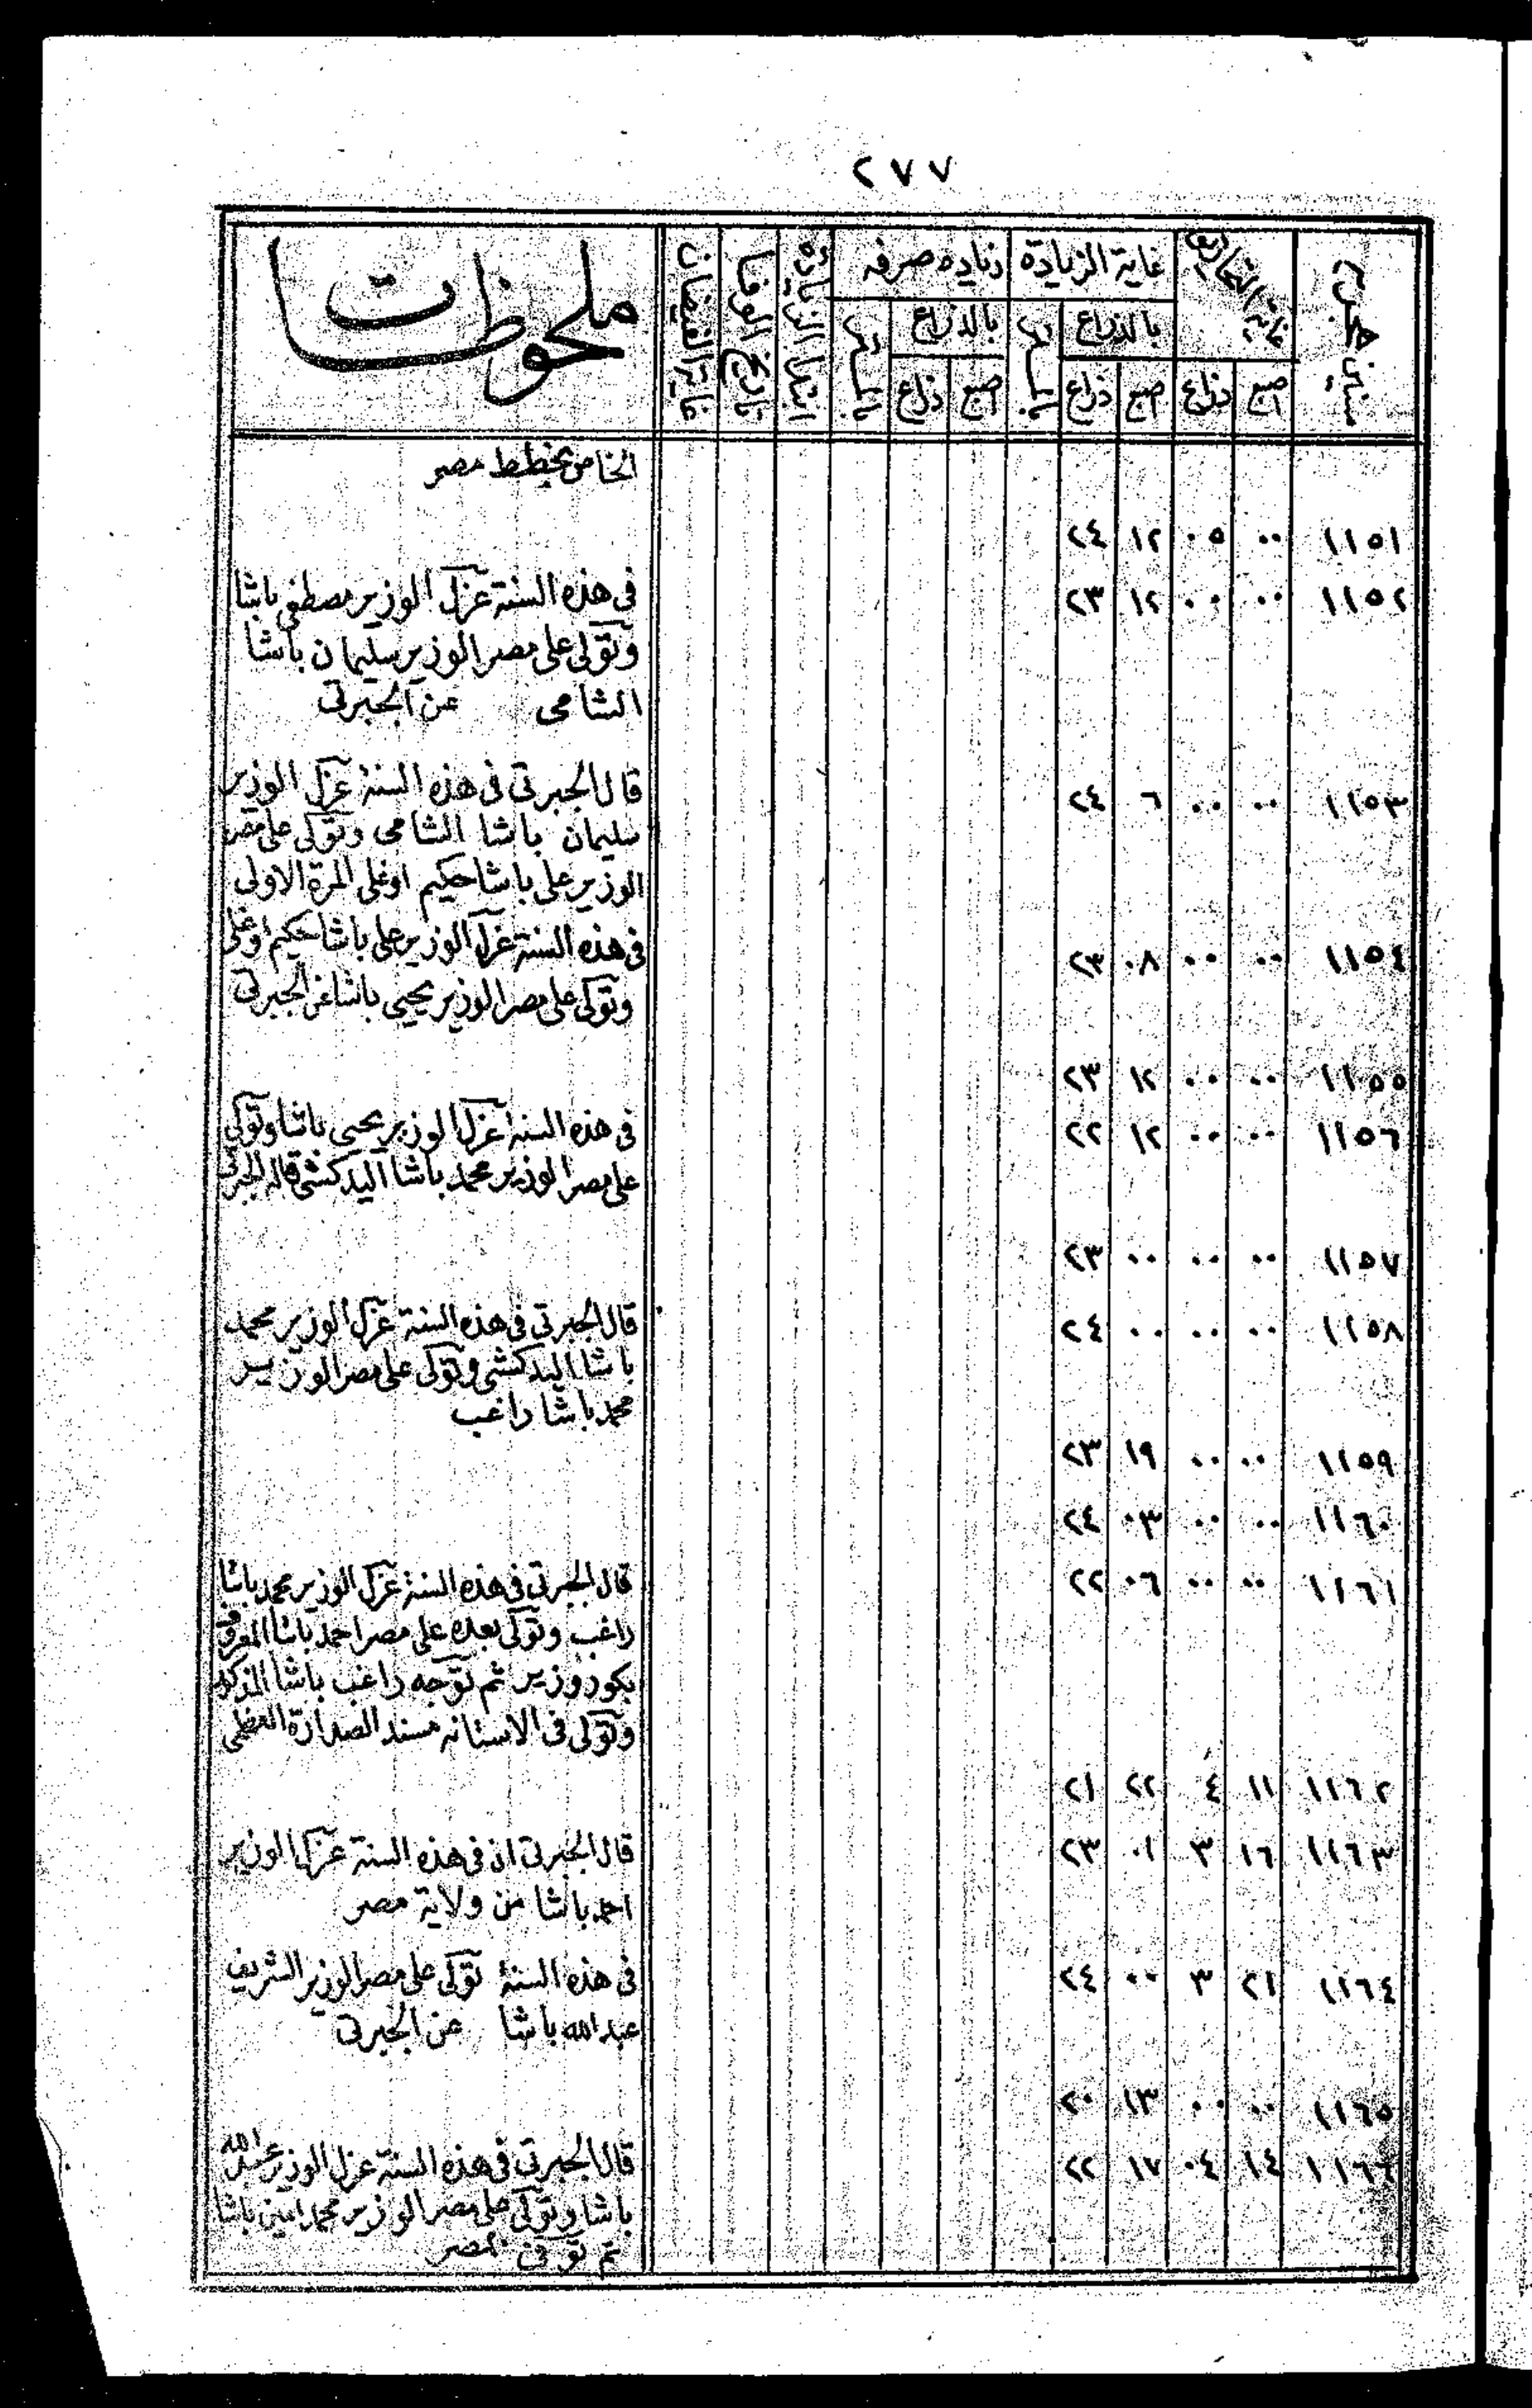 ٢٧٧
سنين هجرية
غاية التحاريق
غاية الزيادة
زياده صرفه
ابتدا الزيادة
تاريخ الوفا
غاية الفيضان
ملحوظات
بالذراع
بالذراع
اصبع ذراع اصبع ذراع اصبع ذراع
الخاص بخطط مصر
١١٥١ ٠٠ ٠٥ ١٢ ٢٤
١١٥٢ ٠٠ ٠٠ ١٢ ٢٣ فى هذه السنة عزل الوزير مصطفى باشا
وتولى على مصر الوزير سليمان باشا
الشامى عن الجبرتى
١١٥٣ ٠٠ ٠٠ ٦ ٢٤ قال الجبرتى فى هذه السنة عزل الوزير
سليمان باشا الشامى وتولى على مصر
الوزير على باشا حكيم اوغلى المرة الاولى
١١٥٤ ٠٠ ٠٠ ٠٨ ٢٣ فى هذه السنة عزل الوزير على باشا حكيم اوغلى
وتولى على مصر الوزير يحيى باشا عن الجبرتى
١١٥٥ ٠٠ ٠٠ ١٢ ٢٣
١١٥٦ ٠٠ ٠٠ ١٢ ٢٢ فى هذه السنة عزل الوزير يحيى باشا وتولى
على مصر الوزير محمد باشا اليدكشى قاله الجبرتى
١١٥٧ ٠٠ ٠٠ ٠٠ ٢٣
١١٥٨ ٠٠ ٠٠ ٠٠ ٢٤ قال الجبرتى فى هذه السنة عزل الوزير محمد
باشا اليدكشى وتولى على مصر الوزير
محمد باشا راغب
١١٥٩ ٠٠ ٠٠ ١٩ ٢٣
١١٦٠ ٠٠ ٠٠ ٠٣ ٢٤
١١٦١ ٠٠ ٠٠ ٠٦ ٢٢ قال الجبرتى فى هذه السنة عزل الوزير محمد باشا
راغب وتولى بعده على مصر احمد باشا المعروف
بكور وزير ثم توجه راغب باشا المذكور
وتولى فى الاستانه مسند الصدارة العظمى
١١٦٢ ١١ ٤ ٢٢ ٢١
١١٦٣ ١٦ ٣ ٠١ ٢٣ قال الجبرتى ان فى هذه السنة عزل الوزير
احمد باشا من ولاية مصر
١١٦٤ ٢١ ٣ ٠٠ ٢٤ فى هذه السنة تولى على مصر الوزير الشريف
عبد الله باشا عن الجبرتى
١١٦٥ ٠٠ ٠٠ ١٣ ٢٠
١١٦٦ ١٤ ٠٤ ١٧ ٢٢ قال الجبرتى فى هذه السنة عزل الوزير عبد الله
باشا وتولى على مصر الوزير محمد امين باشا
ثم توفى بمصر